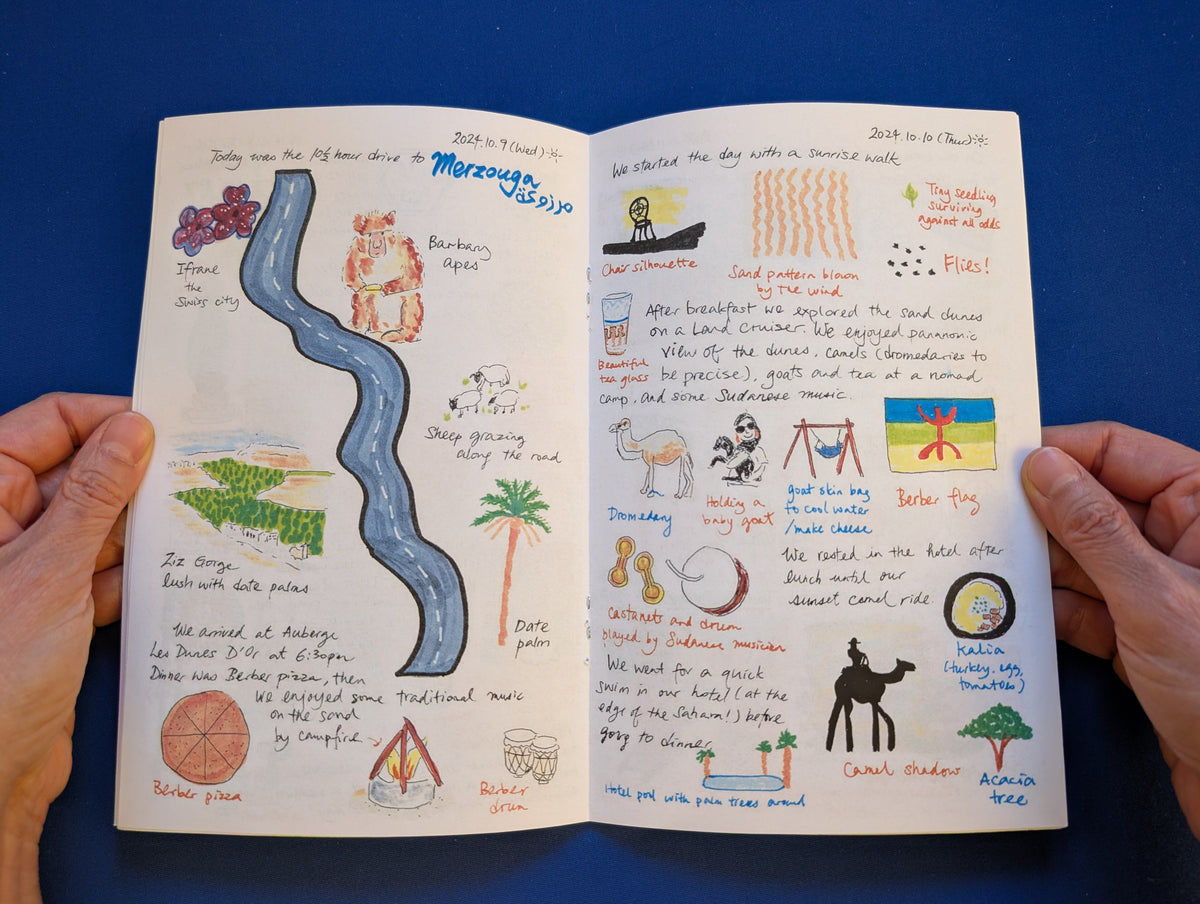 2024.10.9 (Wed)
Today was the 10½ hour drive to Merzouga
مرزوكة
Ifrane
the
Swiss city
Barbary
apes
Sheep grazing
along the road
Ziz Gorge
lush with date palms
Date
palm
We arrived at Auberge
Les Dunes D'Or at 6:30pm
Dinner was Berber pizza, then
we enjoyed some traditional music
on the sand
by campfire
Berber pizza
Berber
drum
2024.10.10 (Thur)
We started the day with a sunrise walk
Chair silhouette
Sand pattern blown
by the wind
Tiny seedling
surviving
against all odds
Flies!
Beautiful
tea glass
After breakfast we explored the sand dunes
on a Land Cruiser. We enjoyed pananonic
view of the dunes, camels (dromedaries to
be precise), goats and tea at a nomad
camp, and some Sudanese music.
Dromedary
Holding a
baby goat
goat skin bag
to cool water
/make cheese
Berber flag
Castanets and drum
played by Sudanese musician
We rested in the hotel after
lunch until our
sunset camel ride.
Kalia
(turkey, egg,
tomatoes)
We went for a quick
swim in our hotel (at the
edge of the Sahara!) before
going to dinner
Hotel pool with palm trees around
Camel shadow
Acacia
tree